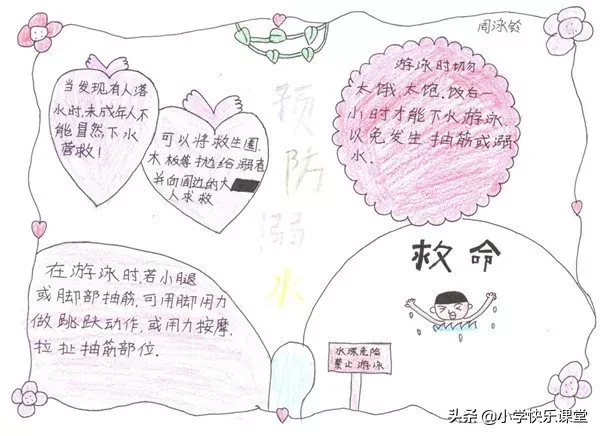 周泳铃
当发现有人落
水时,未成年人不
能冒然下水
营救!
可以将救生圈、
木板等抛给溺者
并向周边的大
人求救
预
防
溺
水
游泳时切勿
太饿、太饱.饭后一
小时才能下水游泳
以免发生抽筋或溺
水.
在游泳时,若小腿
或脚部抽筋,可用脚用力
做跳跃动作,或用力按摩、
拉扯抽筋部位.
救命
水深危险
禁止游泳
头条 @小学快乐课堂